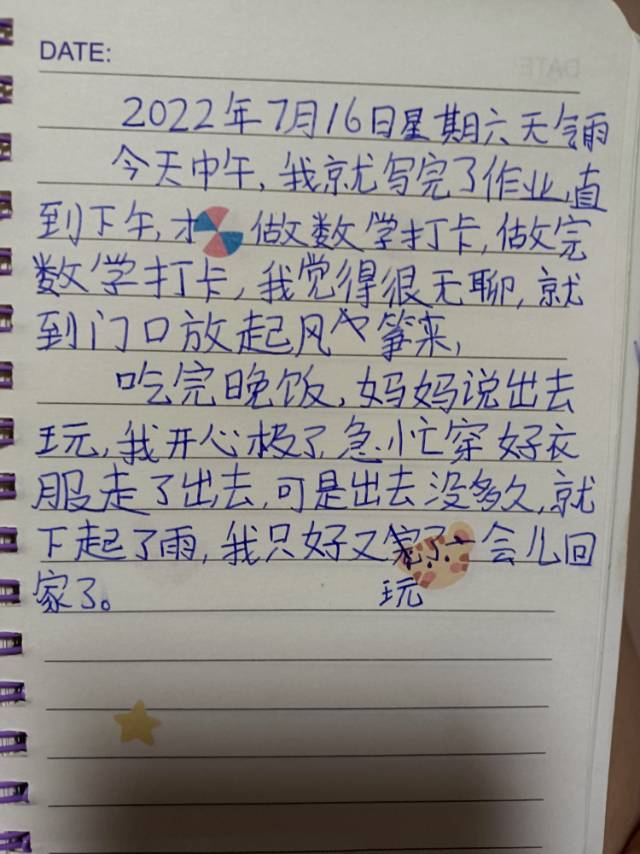 DATE:
2022年7月16日星期六天气雨
今天中午,我就写完了作业,直
到下午,才 做数学打卡,做完
数学打卡,我觉得很无聊,就
到门口放起风筝来,
吃完晚饭,妈妈说出去
玩,我开心极了,急忙穿好衣
服走了出去,可是出去没多久,就
下起了雨,我只好又 了一会儿回
玩
家了。